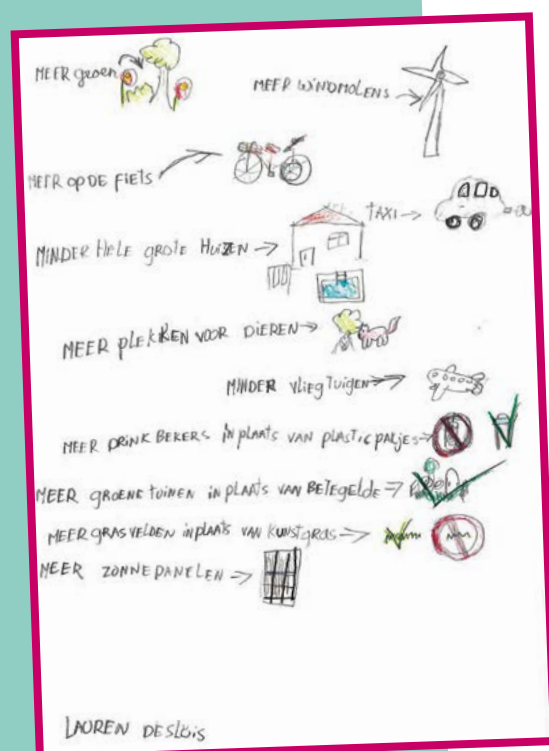 MEER groen
MEER WINDMOLENS
MEER OP DE FIETS
TAXI
MINDER HELE GROTE HUIZEN
MEER PLEKKEN VOOR DIEREN
MINDER VLIEGTUIGEN
MEER DRINK BEKERS IN PLAATS VAN PLASTIC PAKJES
MEER GROENE TUINEN IN PLAATS VAN BETEGELDE
MEER GRASVELDEN IN PLAATS VAN KUNSTGRAS
MEER ZONNEPANELEN
LAUREN